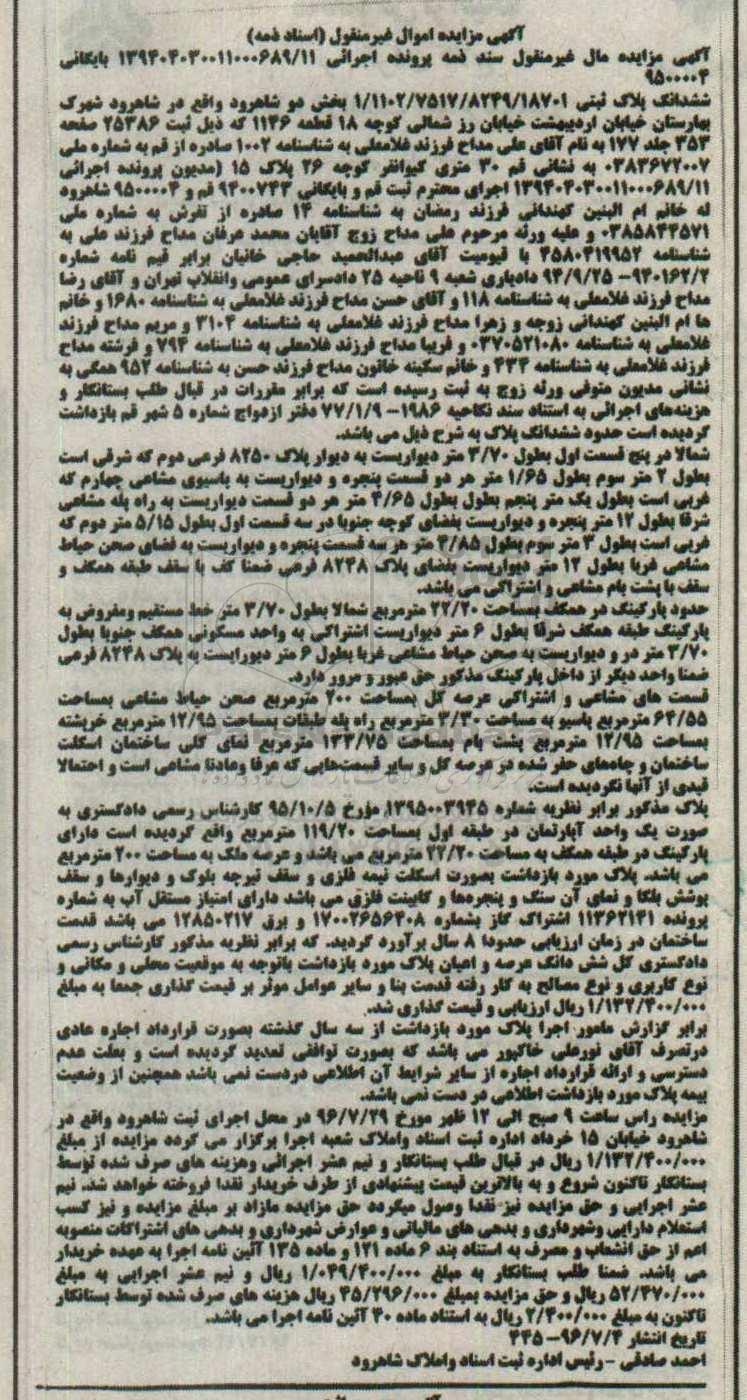 آگهی مزایده اموال غیرمنقول (اسناد ذمه)
آگهی مزایده مال غیرمنقول سند ذمه پرونده اجرائی ۱۳۹۴۰۴۰۳۰۰۱۱۰۰۰۶۸۹/۱۱ بایگانی
۹۵۰۰۰۰۴
ششدانگ پلاک ثبتی ۱/۱۱۰۲/۷۵۱۷/۸۲۴۹/۱۸۷۰۱ بخش دو شاهرود واقع در شاهرود شهرک
بهارستان خیابان اردیبهشت خیابان رز شمالی کوچه ۱۸ قطعه ۱۱۴۶ که ذیل ثبت ۲۵۳۸۶ صفحه
۳۵۳ جلد ۱۷۷ به نام آقای علی مداح فرزند غلامعلی به شناسنامه ۱۰۰۲ صادره از قم به شماره ملی
۰۳۸۳۶۷۲۰۰۷ به نشانی قم ۳۰ متری کیوانفر کوچه ۲۶ پلاک ۱۵ (مدیون پرونده اجرائی
۱۳۹۴۰۴۰۳۰۰۱۱۰۰۰۶۸۹/۱۱ اجرای محترم ثبت قم و بایگانی ۹۴۰۰۷۴۳ قم و ۹۵۰۰۰۰۴ شاهرود
له خانم ام البنین کهندانی فرزند رمضان به شناسنامه ۱۴ صادره از تفرش به شماره ملی
۰۳۸۵۸۴۳۵۷۱ و علیه ورثه مرحوم علی مداح زوج آقایان محمد عرفان مداح فرزند علی به
شناسنامه ۴۵۸۰۴۱۹۹۵۲ با قیومیت آقای عبدالحمید حاجی خانیان برابر قیم نامه شماره
۹۴۰۱۶۲/۲- ۹۴/۹/۲۵ دادیاری شعبه ۹ ناحیه ۲۵ دادسرای عمومی وانقلاب تهران و آقای رضا
مداح فرزند غلامعلی به شناسنامه ۱۱۸ و آقای حسن مداح فرزند غلامعلی به شناسنامه ۱۶۸۰ و خانم
ها ام البنین کهندانی زوجه و زهرا مداح فرزند غلامعلی به شناسنامه ۳۱۰۴ و مریم مداح فرزند
غلامعلی به شناسنامه ۰۳۷۰۵۲۱۰۸۰ و فریبا مداح فرزند غلامعلی به شناسنامه ۷۹۴ و فرشته مداح
فرزند غلامعلی به شناسنامه ۴۳۴ و خانم سکینه خاتون مداح فرزند حسن به شناسنامه ۹۵۲ همگی به
نشانی مدیون متوفی ورثه زوج به ثبت رسیده است که برابر مقررات در قبال طلب بستانکار و
هزینه‌های اجرائی به استناد سند نکاحیه ۱۹۸۶- ۷۷/۱/۹ دفتر ازدواج شماره ۵ شهر قم بازداشت
گردیده است حدود ششدانگ پلاک به شرح ذیل می باشد.
شمالا در پنج قسمت اول بطول ۳/۷۰ متر دیواریست به دیوار پلاک ۸۲۵۰ فرعی دوم که شرقی است
بطول ۲ متر سوم بطول ۱/۶۵ متر هر دو قسمت پنجره و دیواریست به پاسیوی مشاعی چهارم که
غربی است بطول یک متر پنجم بطول بطول ۴/۶۵ متر هر دو قسمت دیواریست به راه پله مشاعی
شرقا بطول ۱۲ متر پنجره و دیواریست بفضای کوچه جنوبا در سه قسمت اول بطول ۵/۱۵ متر دوم که
غربی است بطول ۳ متر سوم بطول ۴/۸۵ متر هر سه قسمت پنجره و دیواریست به فضای صحن حیاط
مشاعی غربا بطول ۱۲ متر دیواریست بفضای پلاک ۸۲۴۸ فرعی ضمنا کف با سقف طبقه همکف و
سقف با پشت بام مشاعی و اشتراکی می باشد.
حدود پارکینگ در همکف بمساحت ۲۲/۲۰ مترمربع شمالا بطول ۳/۷۰ متر خط مستقیم ومفروض به
پارکینگ طبقه همکف شرقا بطول ۶ متر دیواریست اشتراکی به واحد مسکونی همکف جنوبا بطول
۳/۷۰ متر در و دیواریست به صحن حیاط مشاعی غربا بطول ۶ متر دیورایست به پلاک ۸۲۴۸ فرعی
ضمنا واحد دیگر از داخل پارکینگ مذکور حق عبور و مرور دارد.
قسمت های مشاعی و اشتراکی عرصه کل بمساحت ۲۰۰ مترمربع صحن حیاط مشاعی بمساحت
۶۴/۵۵ مترمربع پاسیو به مساحت ۳/۳۰ مترمربع راه پله طبقات بمساحت ۱۲/۹۵ مترمربع خرپشته
بمساحت ۱۲/۹۵ مترمربع پشت بام بمساحت ۱۳۲/۷۵ مترمربع نمای کلی ساختمان اسکلت
ساختمان و چاه‌های حفر شده در عرصه کل و سایر قسمت‌هایی که عرفا وعادتا مشاعی است و احتمالا
قیدی از آنها نگردیده است.
پلاک مذکور برابر نظریه شماره ۱۳۹۵۰۰۳۹۴۵ مؤرخ ۹۵/۱۰/۵ کارشناس رسمی دادگستری به
صورت یک واحد آپارتمان در طبقه اول بمساحت ۱۱۹/۲۰ مترمربع واقع گردیده است دارای
پارکینگ در طبقه همکف به مساحت ۲۲/۲۰ مترمربع می باشد و عرصه ملک به مساحت ۲۰۰ مترمربع
می باشد. پلاک مورد بازداشت بصورت اسکلت نیمه فلزی و سقف تیرچه بلوک و دیوارها و سقف
پوشش بلکا و نمای آن سنگ و پنجره‌ها و کابینت فلزی می باشد دارای امتیاز مستقل آب به شماره
پرونده ۱۱۳۶۲۱۴۱ اشتراک گاز بشماره ۱۷۰۰۲۶۵۶۴۰۸ و برق ۱۲۸۵۰۲۱۷ می باشد قدمت
ساختمان در زمان ارزیابی حدودا ۸ سال برآورد گردید. که برابر نظریه مذکور کارشناس رسمی
دادگستری کل شش دانگ عرصه و اعیان پلاک مورد بازداشت باتوجه به موقعیت محلی و مکانی و
نوع کاربری و نوع مصالح به کار رفته قدمت بنا و سایر عوامل موثر بر قیمت گذاری جمعا به مبلغ
۱/۱۳۲/۴۰۰/۰۰۰ ریال ارزیابی و قیمت گذاری شد.
برابر گزارش مامور اجرا پلاک مورد بازداشت از سه سال گذشته بصورت قرارداد اجاره عادی
درتصرف آقای نورعلی خاکپور می باشد که بصورت توافقی تمدید گردیده است و بعلت عدم
دسترسی و ارائه قرارداد اجاره از سایر شرایط آن اطلاعی دردست نمی باشد همچنین از وضعیت
بیمه پلاک مورد بازداشت اطلاعی در دست نمی باشد.
مزایده راس ساعت ۹ صبح الی ۱۲ ظهر مورخ ۹۶/۷/۲۹ در محل اجرای ثبت شاهرود واقع در
شاهرود خیابان ۱۵ خرداد اداره ثبت اسناد واملاک شعبه اجرا برگزار می گردد مزایده از مبلغ
۱/۱۳۲/۴۰۰/۰۰۰ ریال در قبال طلب بستانکار و نیم عشر اجرائی وهزینه های صرف شده توسط
بستانکار تاکنون شروع و به بالاترین قیمت پیشنهادی از طرف خریدار نقدا فروخته خواهد شد. نیم
عشر اجرایی و حق مزایده نیز نقدا وصول میگردد حق مزایده مازاد بر مبلغ مزایده و نیز کسب
استعلام دارایی وشهرداری و بدهی های مالیاتی و عوارض شهرداری و بدهی های اشتراکات منصوبه
اعم از حق انشعاب و مصرف به استناد بند ۶ ماده ۱۲۱ و ماده ۱۳۵ آئین نامه اجرا به عهده خریدار
می باشد. ضمنا طلب بستانکار به مبلغ ۱/۰۴۹/۴۰۰/۰۰۰ ریال و نیم عشر اجرایی به مبلغ
۵۲/۴۷۰/۰۰۰ ریال و حق مزایده بمبلغ ۴۵/۲۹۶/۰۰۰ ریال هزینه های صرف شده توسط بستانکار
تاکنون به مبلغ ۲/۴۰۰/۰۰۰ ریال به استناد ماده ۴۰ آئین نامه اجرا می باشد.
تاریخ انتشار ۹۶/۷/۴- ۴۴۵
احمد صادقی -رئیس اداره ثبت اسناد واملاک شاهرود